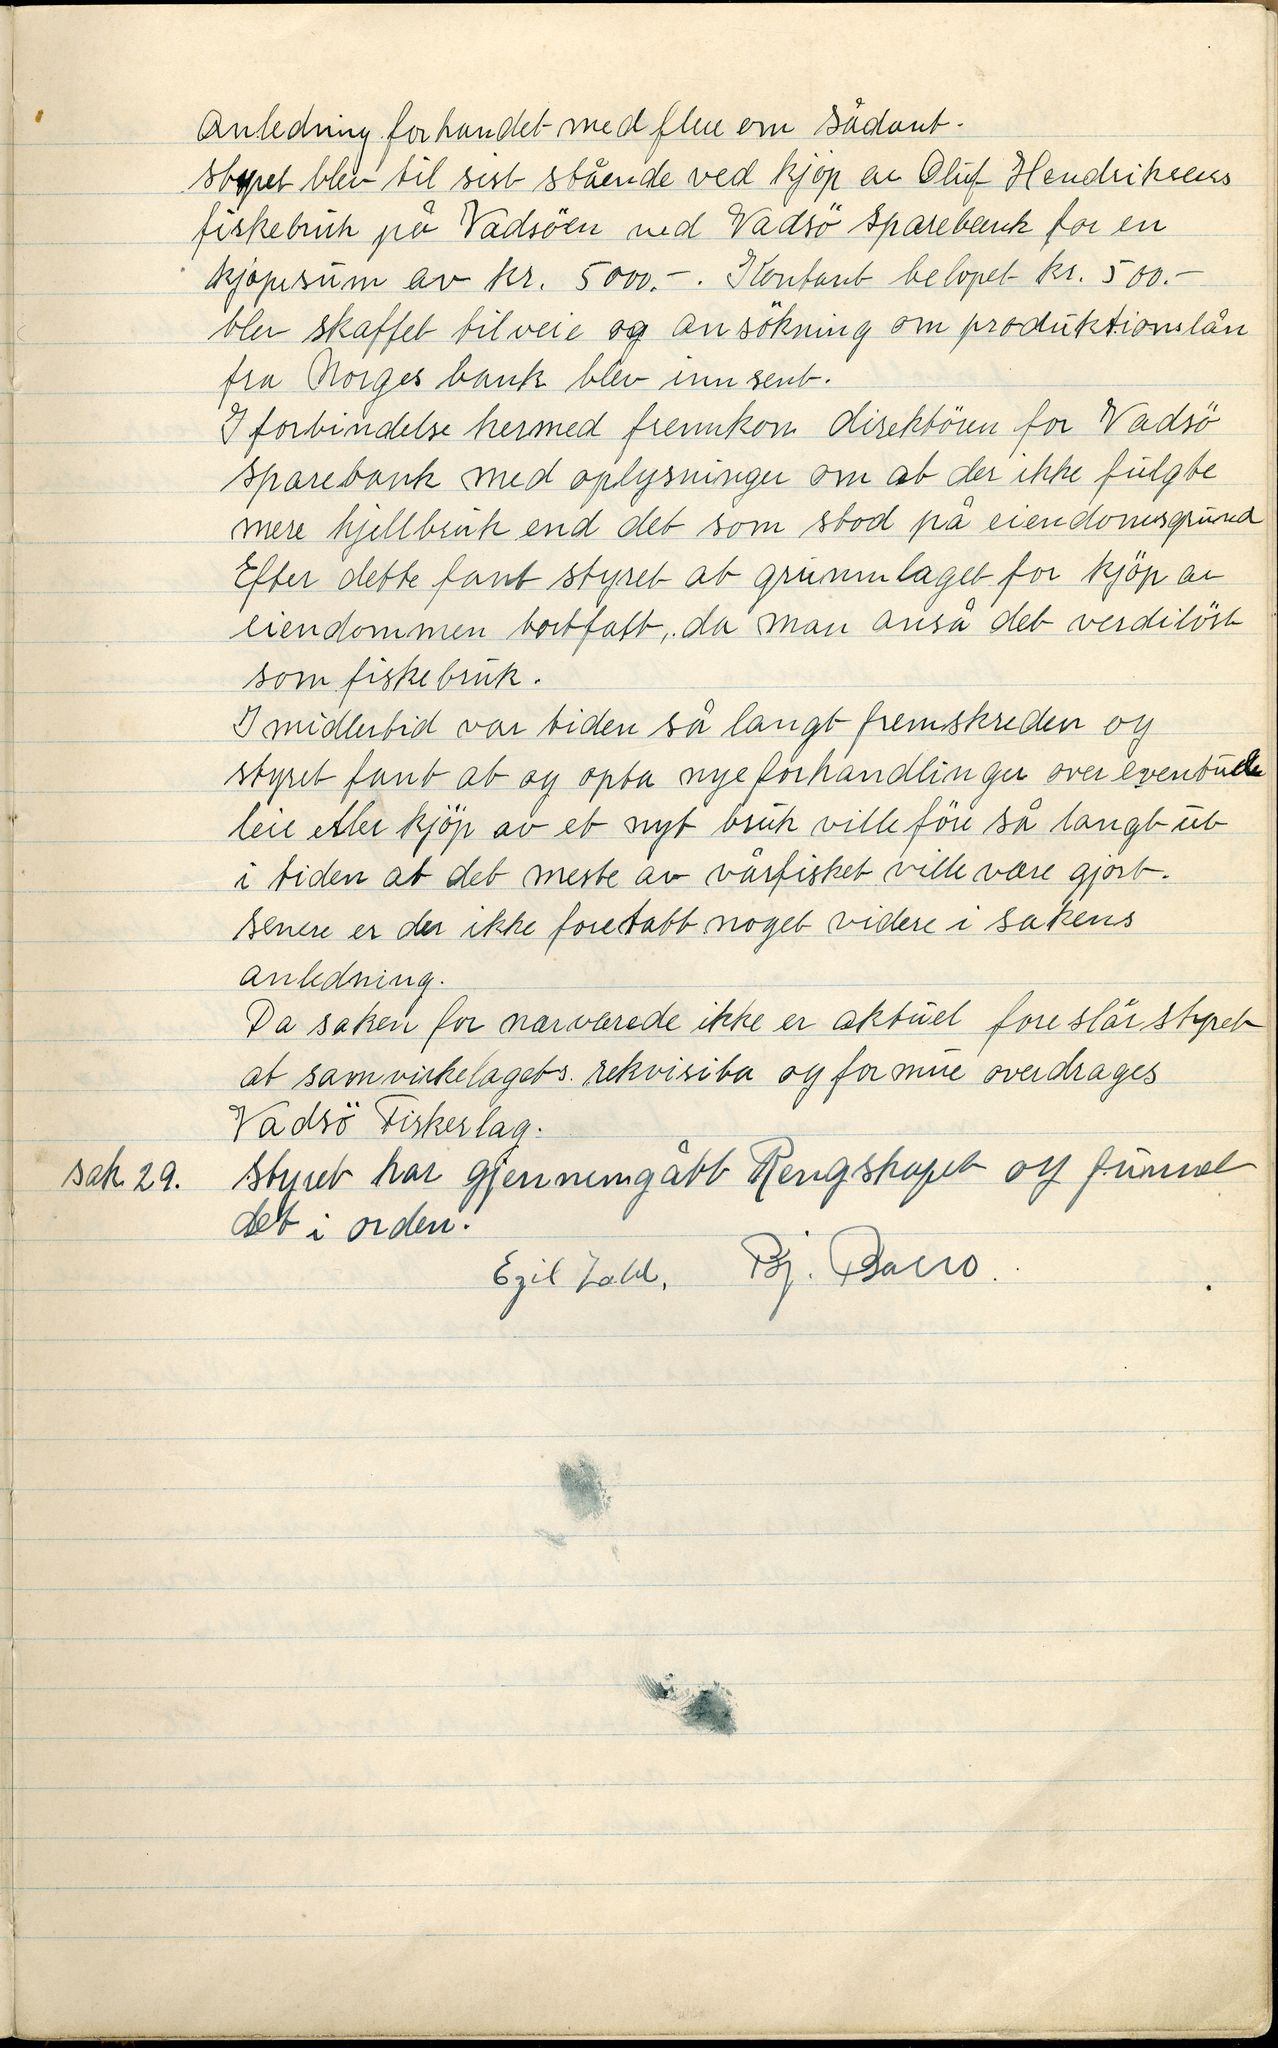 Anledning forhandlet med flere om sådant.
styret blev til sist stående ved kjöp av Oluf Hendriksens
fiskebruk på Vadsöen ved Vadsö Sparebank for en
kjöpesum av kr. 5000.-. Kontant belöpet kr. 500.-
blev skaffet tilveie og ansökning om produktionslån
fra Norges bank blev innsent.
I forbindelse hermed fremkom direktören for Vadsö
Sparebank med oplysninger om at der ikke fulgte
mere hjellbruk end det som stod på eiendomsgrund
Efter dette fant styret at grunnlaget for kjöp av
eiendommen bortfalt, da man anså det verdilöst
som fiskebruk.
Imidlertid var tiden så langt fremskreden og
styret fant at og opta nye forhandlinger over eventuelle
leie eller kjöp av et nyt bruk ville före så langt ut
i tiden at det meste av vårfisket ville være gjort.
senere er der ikke foretatt noget videre i sakens
anledning.
Da saken for nærværede ikke er aktuel foreslår styret
at samvirkelagets rekvisita og formue overdrages
Vadsö Fiskerlag.
sak 29. Styret har gjennemgått Rengskapet og funnet
det i orden.
Egil Bj.